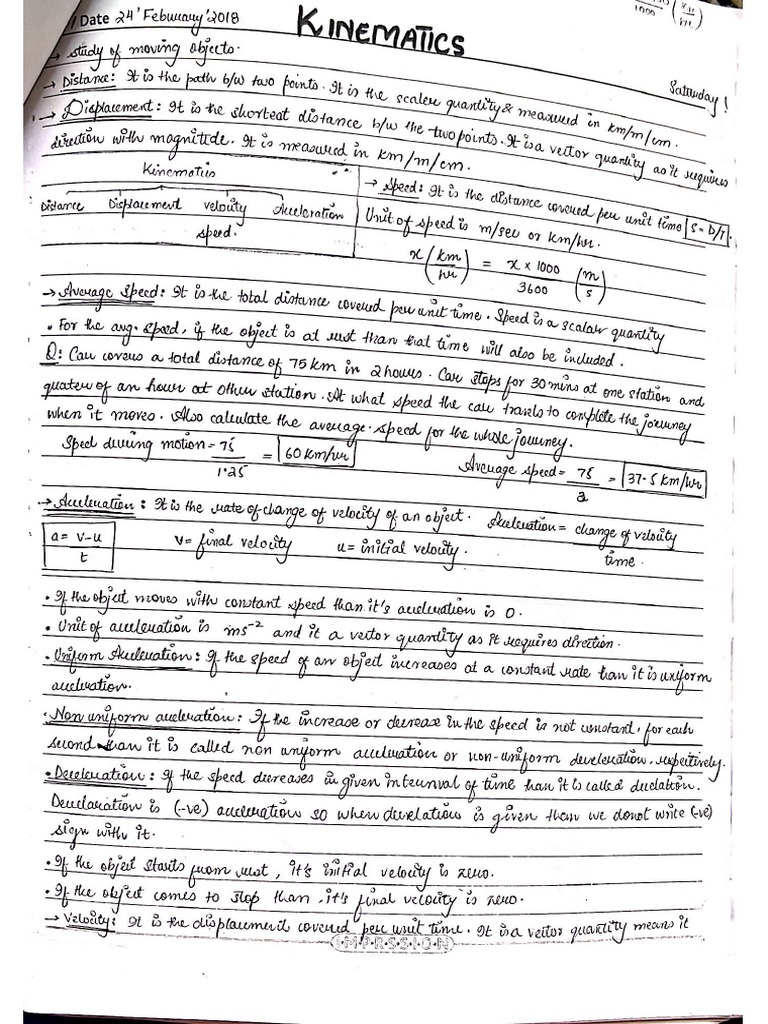 1000 (km/hr)
Date 24' February' 2018
KINEMATICS
Saturday!
→ study of moving objects.
→ Distance: It is the path b/w two points. It is the scaler quantity & measured in km/m/cm.
→ Displacement: It is the shortest distance b/w the two points. It is a vector quantity as it requires
direction with magnitude. It is measured in km/m/cm.
Kinematics
Distance Displacement velocity Acceleration
speed.
→ Speed: It is the distance covered per unit time S = D/T.
Unit of speed is m/sec or km/hr.
x (km/hr) = x × 1000/3600 (m/s)
→ Average Speed: It is the total distance covered per unit time. Speed is a scalar quantity
• For the avg. speed, if the object is at rest than that time will also be included.
Q: Car covers a total distance of 75 km in 2 hours. Car stops for 30 mins at one station and
quater of an hour at other station. At what speed the car travels to complete the journey
when it moves. Also calculate the average speed for the whole journey.
Speed during motion = 75/1.25 = 60 km/hr
Average speed = 75/2 = 37.5 km/hr
→ Acceleration: It is the rate of change of velocity of an object. Acceleration = change of velocity/time.
a = v-u/t
v = final velocity u = initial velocity.
• If the object moves with constant speed than it's acceleration is 0.
• Unit of acceleration is ms⁻² and it a vector quantity as it requires direction.
• Uniform Acceleration: If the speed of an object increases at a constant rate than it is uniform
acceleration.
• Non uniform acceleration: If the increase or decrease in the speed is not constant, for each
second than it is called non uniform acceleration or non-uniform deceleration, respectively.
• Deceleration: If the speed decreases in given interval of time than it is called
is (-ve) acceleration so when is given than we donot write (-ve)
sign with it.
• If the object starts from rest, it's initial velocity is zero.
• If the object comes to stop than, it's final velocity is zero.
→ Velocity: It is the displacement covered per unit time. It is a vector quantity means it
IMPRSSION